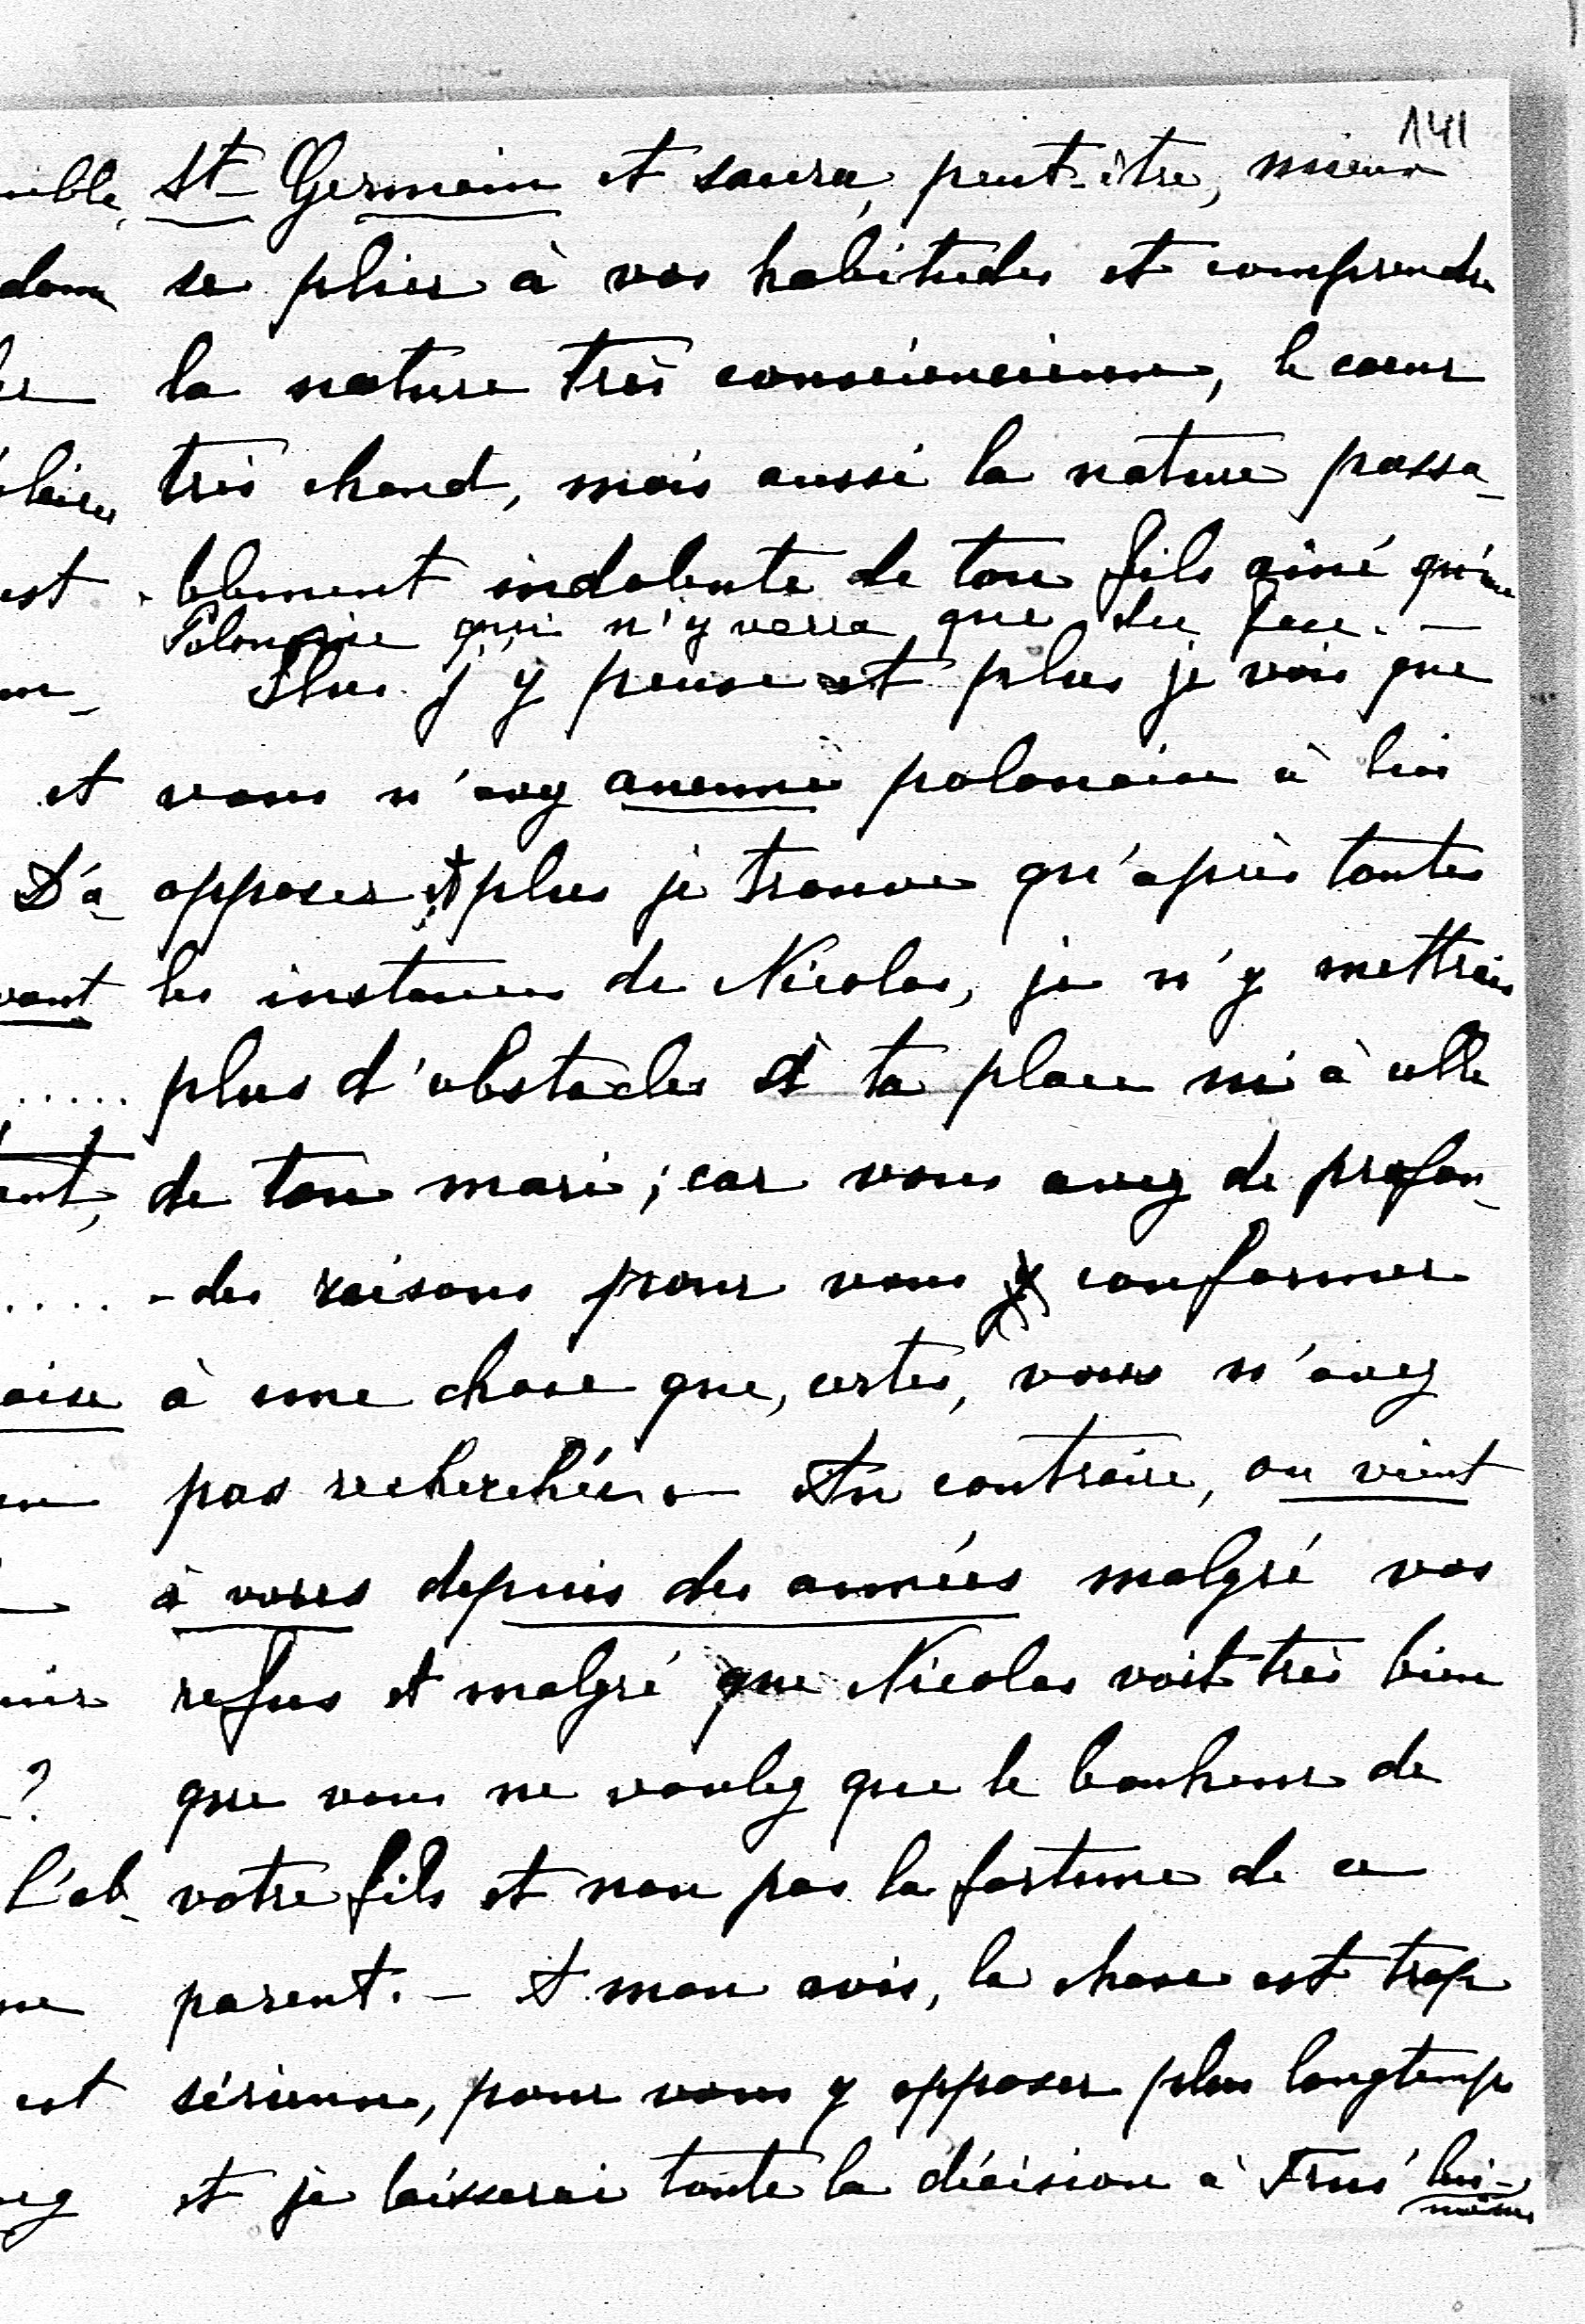 141
St Germain et saura, peut-être, mieux
se plier à vos habitudes et comprendre
la nature très consciencieuse, le cœur
très chaud, mais aussi la nature passa-
-blement indolente de ton fils ainé qu'une
Polonaise qui n'y verra que du feu. —
Plus j'y pense et plus je vois que
vous n'avez aucune polonaise à lui
opposer et plus je trouve qu'après toutes
les instances de Nicolas, je n'y mettrais
plus d'obstacles à ta place ni à celle
de ton mari; car vous avez de profon-
-des raisons pour vous y conformer
à une chose que, certes, vous n'avez
pas recherchée. — Au contraire, on vient
à vous depuis des années malgré vos
refus et malgré que Nicolas voit très bien
que vous ne voulez que le bonheur de
votre fils et non pas la fortune de ce
parent. — A mon avis, la chose est trop
sérieuse, pour vous y opposer plus longtemps
et je laisserai toute la décision à lui-
même